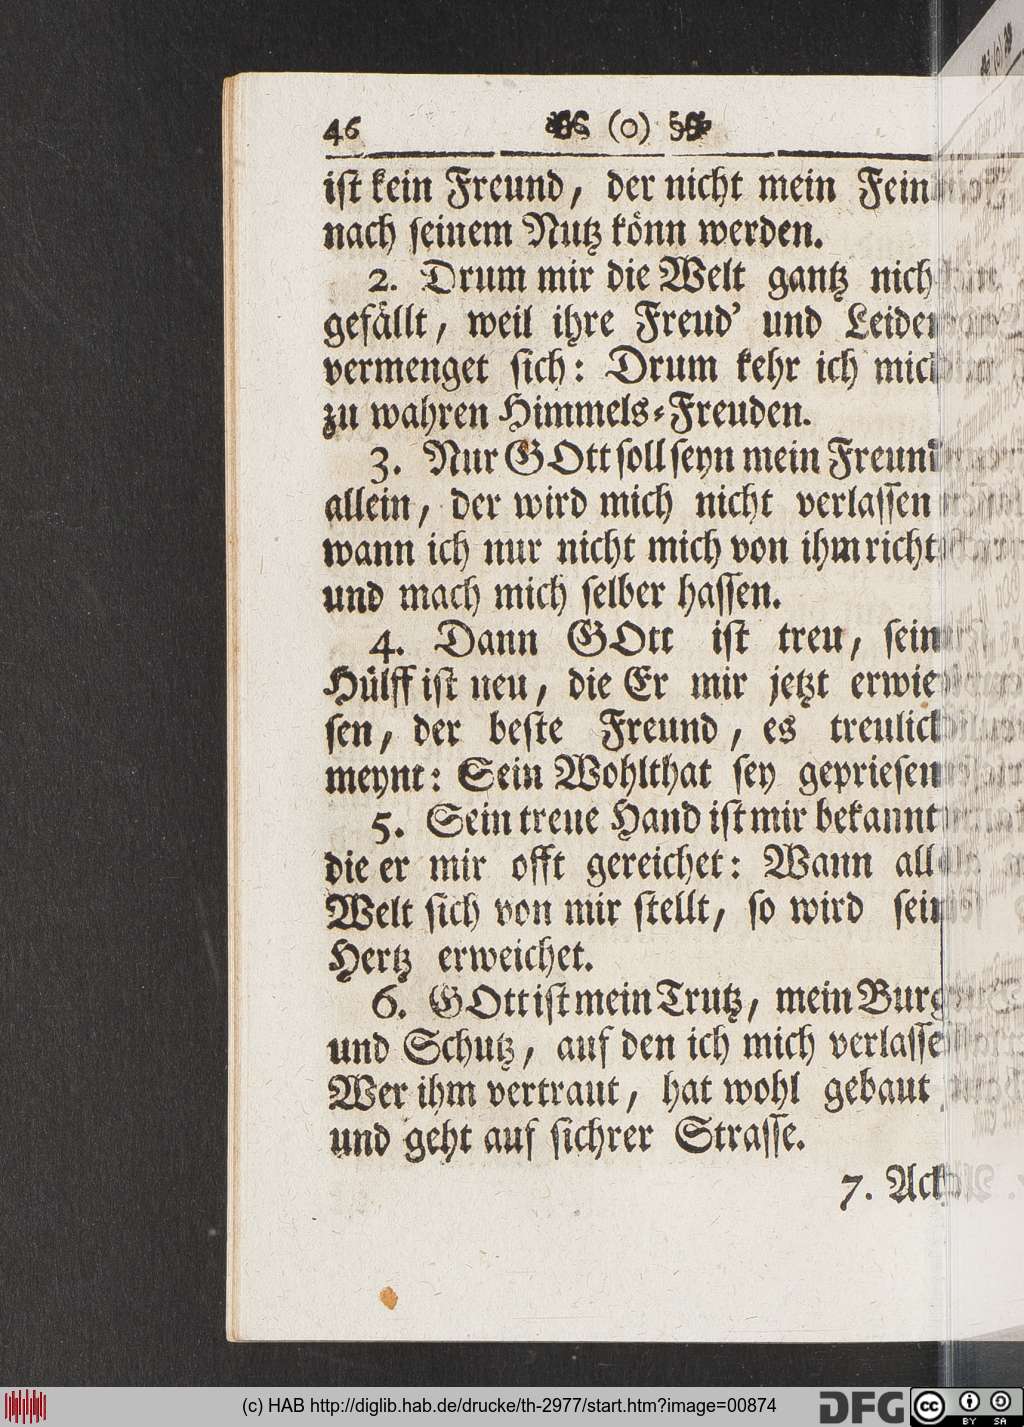 46 (o)
ist kein Freund, der nicht mein Fein
nach seinem Nutz könn werden.
2. Drum mir die Welt gantz nich
gefällt, weil ihre Freud' und Leiden
vermenget sich: Drum kehr ich mich
zu wahren Himmels-Freuden.
3. Nur GOtt soll seyn mein Freund
allein, der wird mich nicht verlassen
wann ich nur nicht mich von ihm richt
und mach mich selber hassen.
4. Dann GOtt ist treu, sein
Hülff ist neu, die Er mir jetzt erwie
sen, der beste Freund, es treulich
meynt: Sein Wohlthat sey gepriesen
5. Sein treue Hand ist mir bekannt
die er mir offt gereichet: Wann all
Welt sich von mir stellt, so wird sein
Hertz erweichet.
6. GOtt ist mein Trutz, mein Burg
und Schutz, auf den ich mich verlasse
Wer ihm vertraut, hat wohl gebaut
und geht auf sichrer Strasse.
7. Ach
(c) HAB http://diglib.hab.de/drucke/th-2977/start.htm?image=00874
DFG
cc BY SA